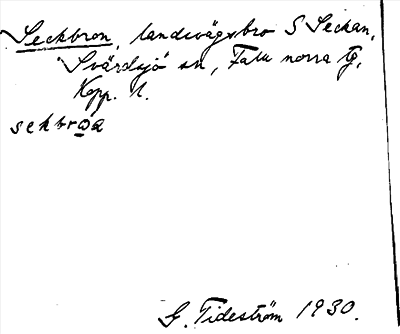 Seckbron, landsvägsbro S Seckan,
Svärdsjö sn, Falu norra tg,
Kopp. l.
sekbrọa
G. Tideström 1930.